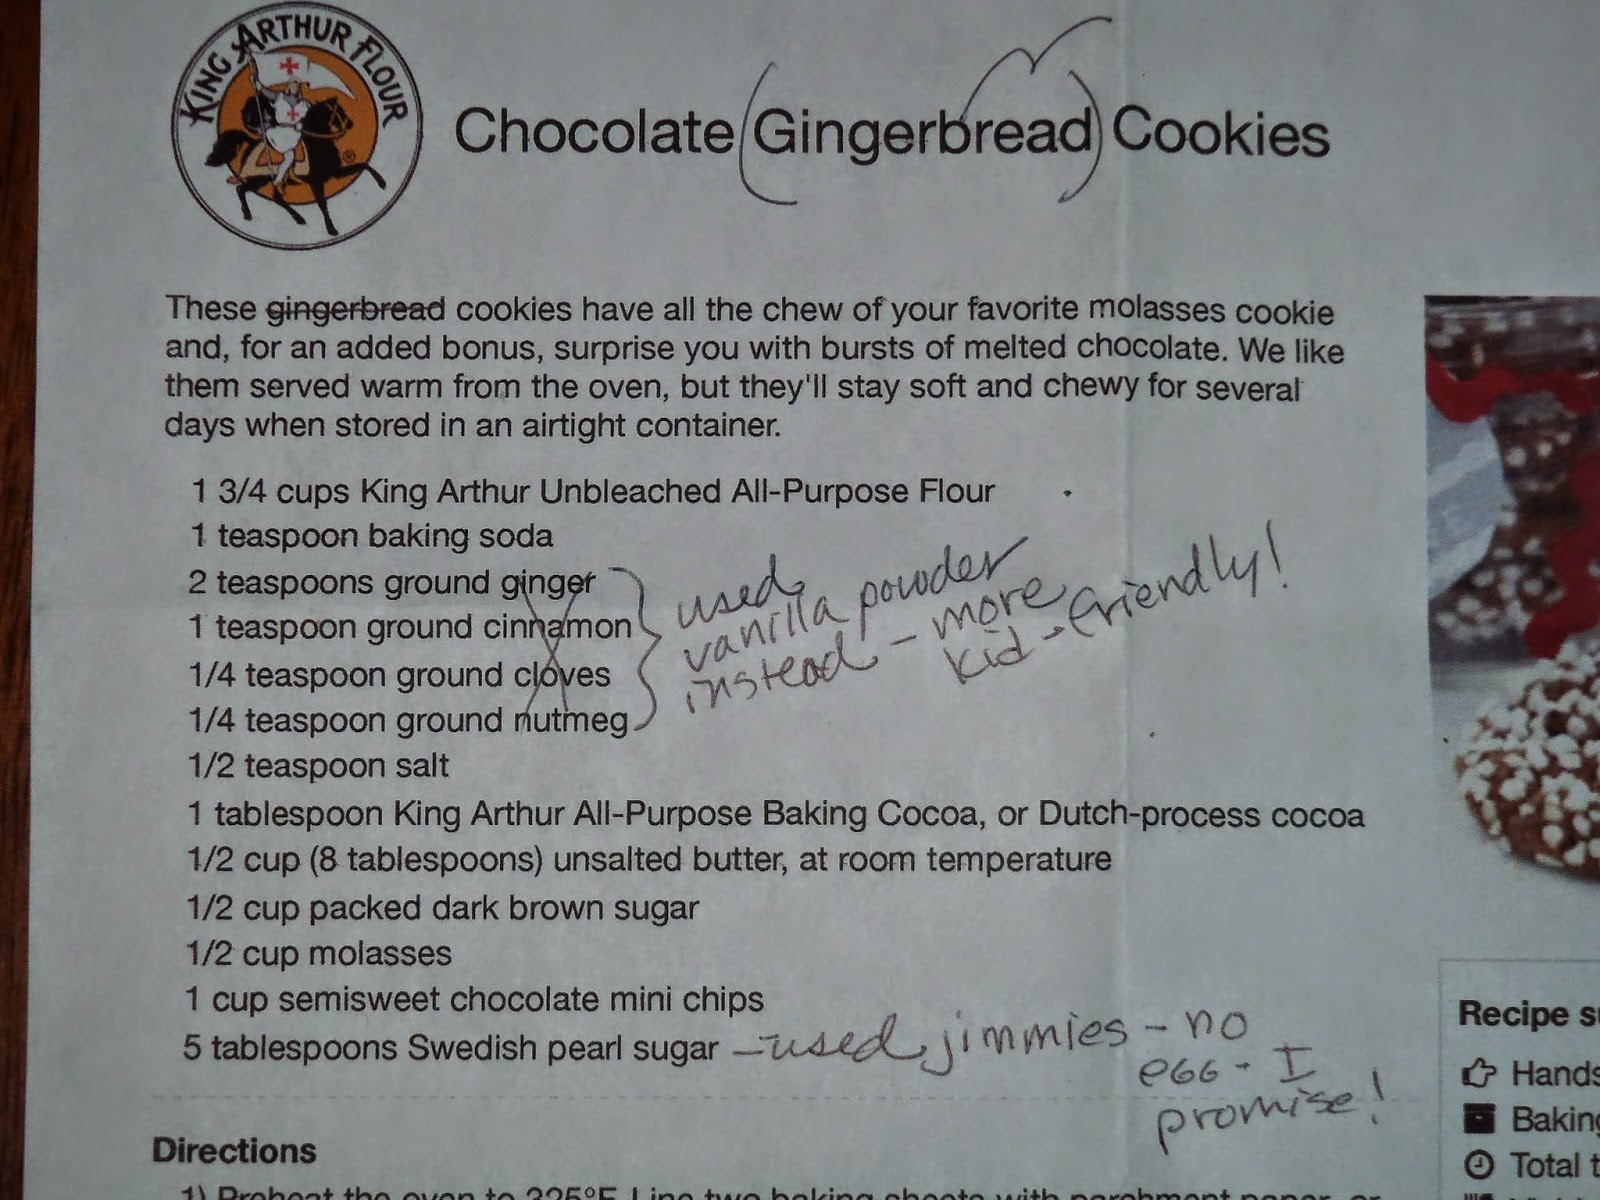 KING ARTHUR FLOUR
®
Chocolate (Gingerbread) Cookies
These gingerbread cookies have all the chew of your favorite molasses cookie
and, for an added bonus, surprise you with bursts of melted chocolate. We like
them served warm from the oven, but they'll stay soft and chewy for several
days when stored in an airtight container.
1 3/4 cups King Arthur Unbleached All-Purpose Flour
1 teaspoon baking soda
2 teaspoons ground ginger
1 teaspoon ground cinnamon
1/4 teaspoon ground cloves
1/4 teaspoon ground nutmeg
used
vanilla powder
instead - more
kid-friendly!
1/2 teaspoon salt
1 tablespoon King Arthur All-Purpose Baking Cocoa, or Dutch-process cocoa
1/2 cup (8 tablespoons) unsalted butter, at room temperature
1/2 cup packed dark brown sugar
1/2 cup molasses
1 cup semisweet chocolate mini chips
5 tablespoons Swedish pearl sugar - used jimmies - no
egg - I
promise!
Recipe
Hands
Baking
Total
Directions
1) Preheat the oven to 325°F. Line two baking sheets with parchment paper, or